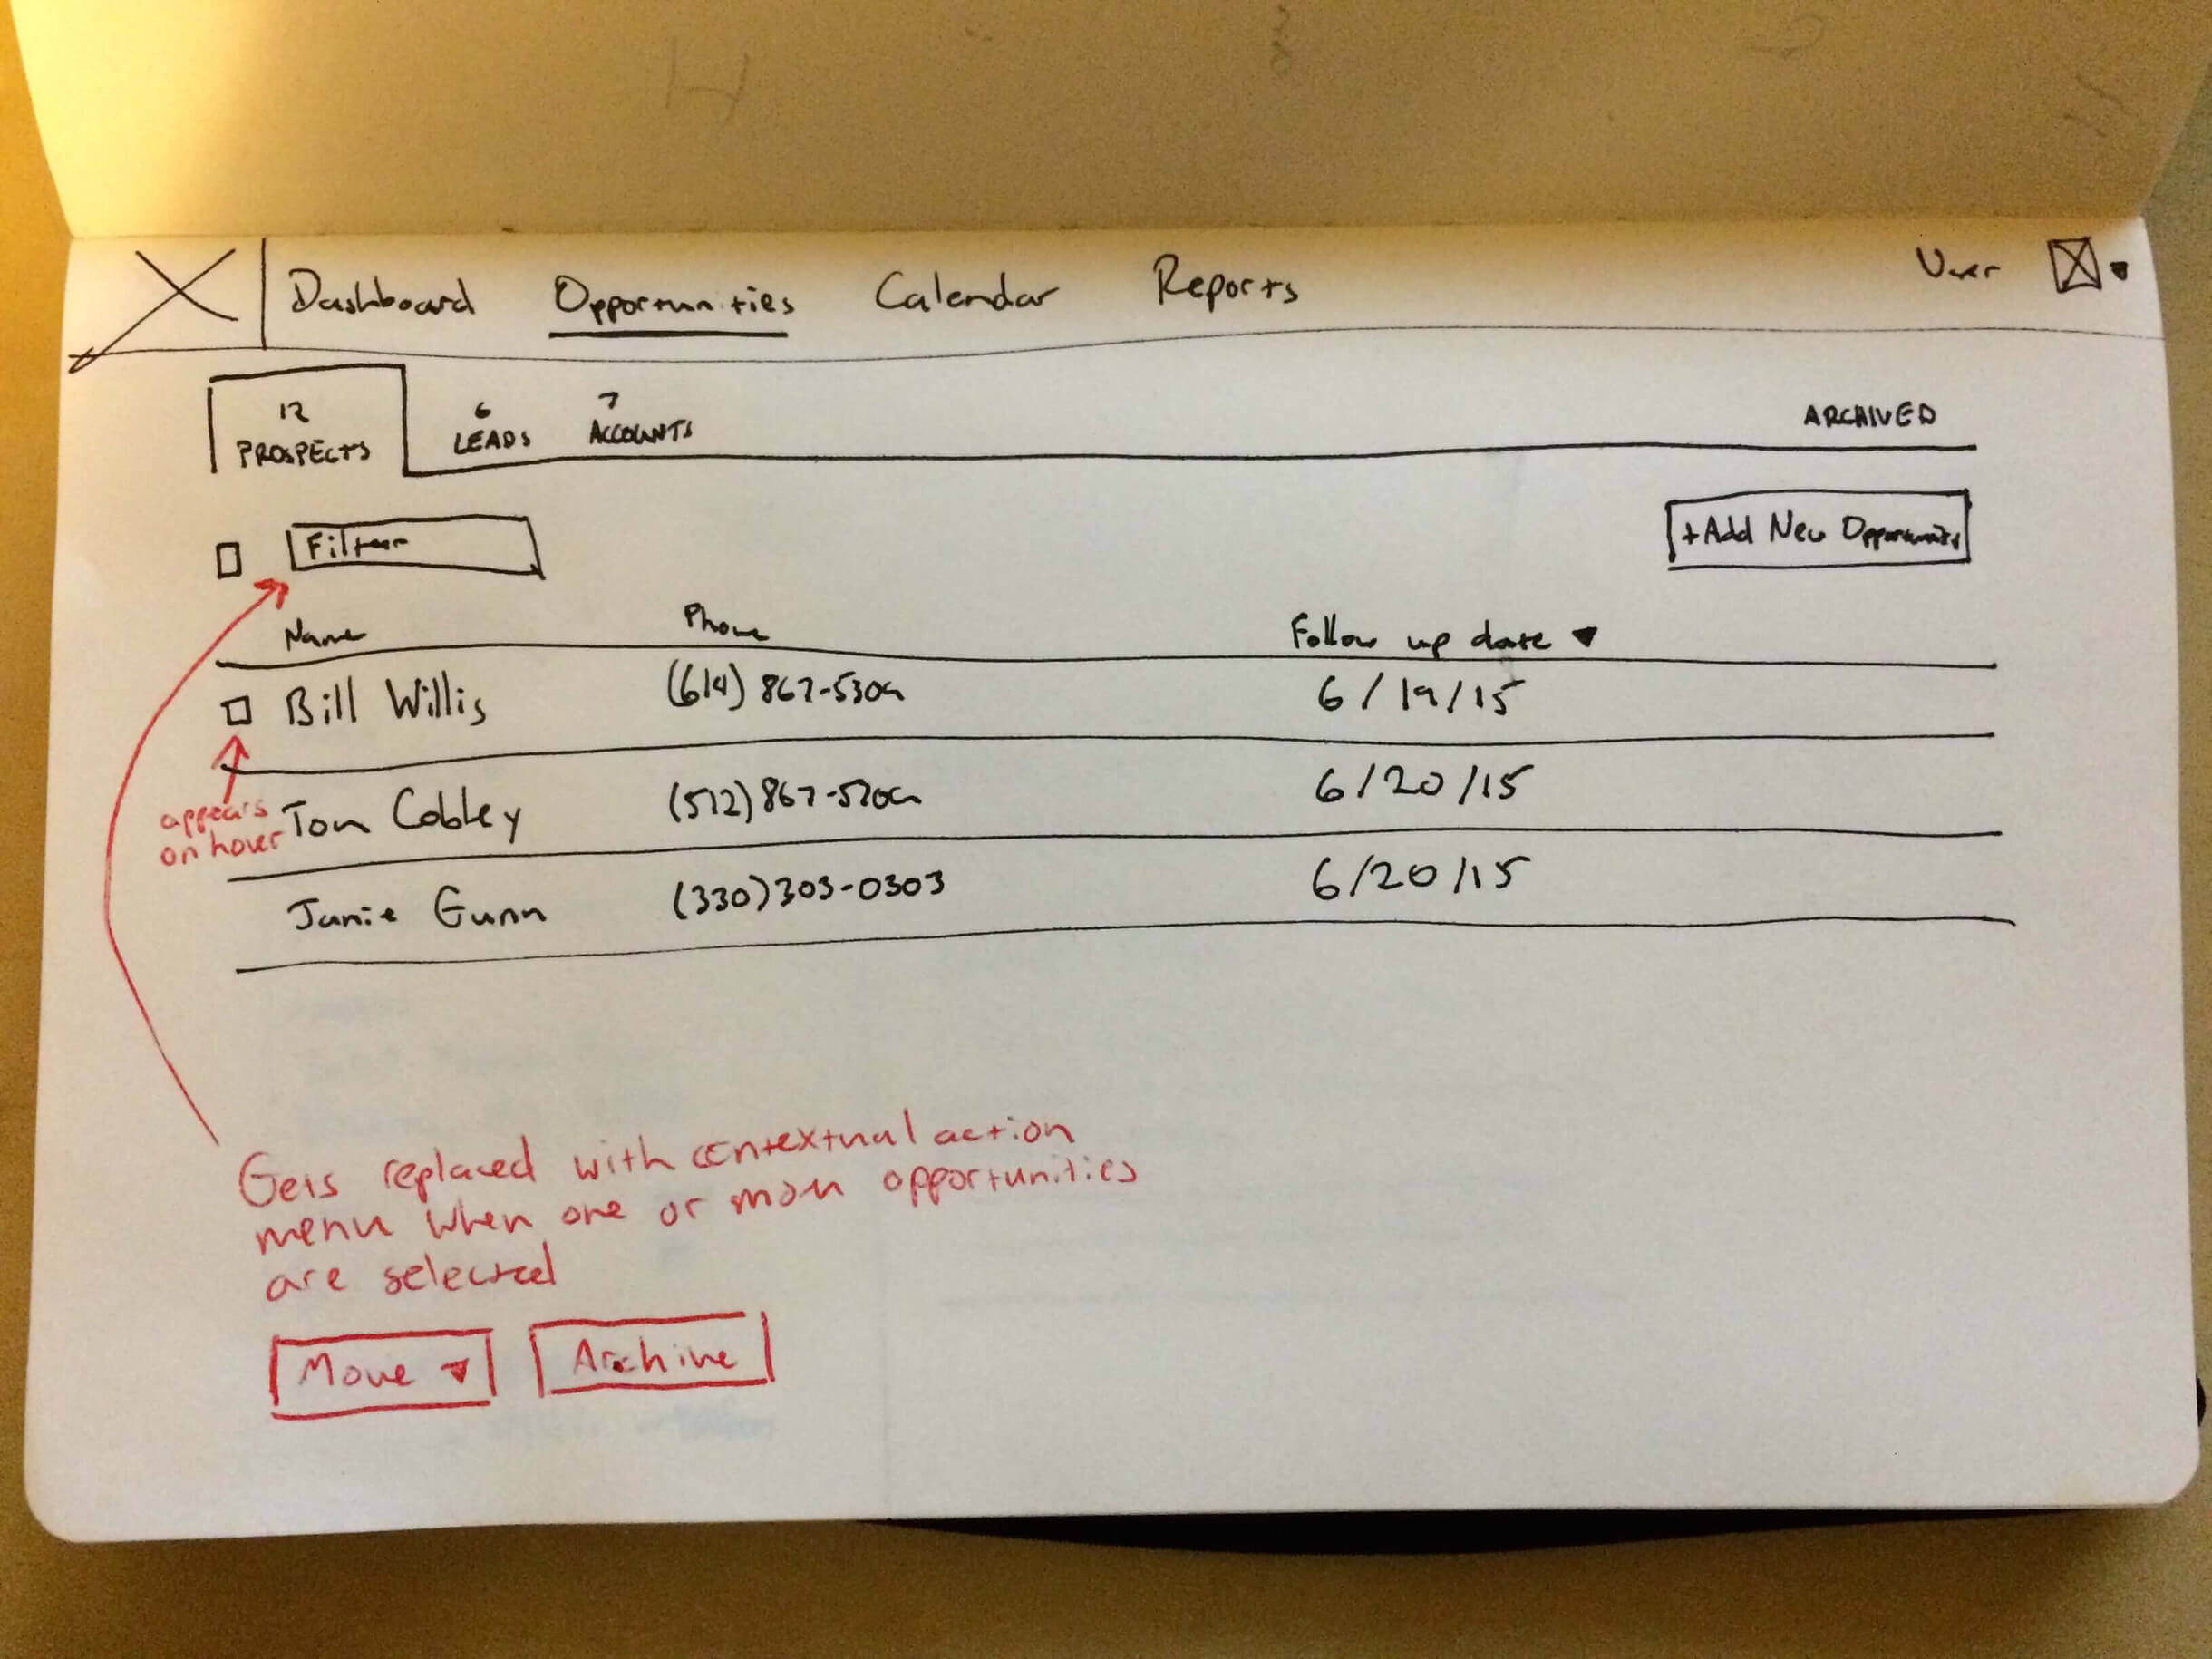 Dashboard Opportunities Calendar Reports User
12 6 7
PROSPECTS LEADS ACCOUNTS ARCHIVED
Filter +Add New Opportunity
Name Phone Follow up date ▼
Bill Willis (614) 867-5309 6/19/15
appears
on hover
Tom Cobley (512) 867-5209 6/20/15
Janie Gunn (330) 303-0303 6/20/15
Gets replaced with contextual action
menu when one or more opportunities
are selected
Move ▼ Archive